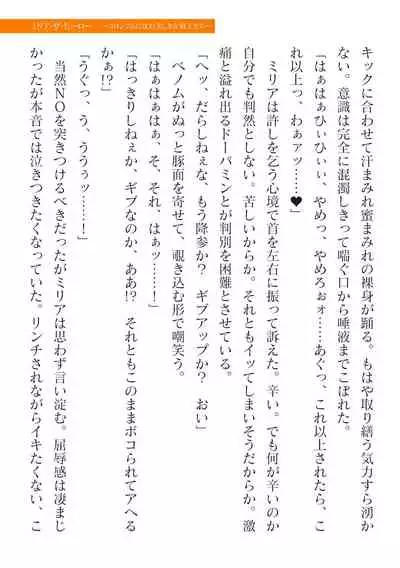 ミリア・ザ・ヒーロー
キックに合わせて汗まみれ蜜まみれの裸身が踊る。もはや取り繕う気力すら湧か
ない。意識は完全に混濁しきって喘ぐ口から唾液までこぼれた。
「はぁはぁひぃひぃぃ、やめっ、やめろぉォ……あぐっ、これ以上されたら、こ
れ以上っ、わぁァッ……♥」
ミリアは許しを乞う心境で首を左右に振って訴えた。辛い。でも何が辛いのか
自分でも判然としない。苦しいからか。それともイッてしまいそうだからか。激
痛と溢れ出るドーパミンとが判別を困難とさせている。
「ヘッ、だらしねぇな、もう降参か？　ギブアップか？　おい」
ベノムがぬっと豚面を寄せて、覗き込む形で嘲笑う。
「はぁはぁはぁ、そ、それ、はぁッ……！」
「はっきりしねぇか、ギブなのか、ああ!?　それともこのままボコられてアへる
かぁ!?」
「うぐっ、う、ううぅッ……！」
当然ＮＯを突きつけるべきだったがミリアは思わず言い淀む。屈辱感は凄まじ
かったが本音では泣きつきたくなっていた。リンチされながらイキたくない、こ